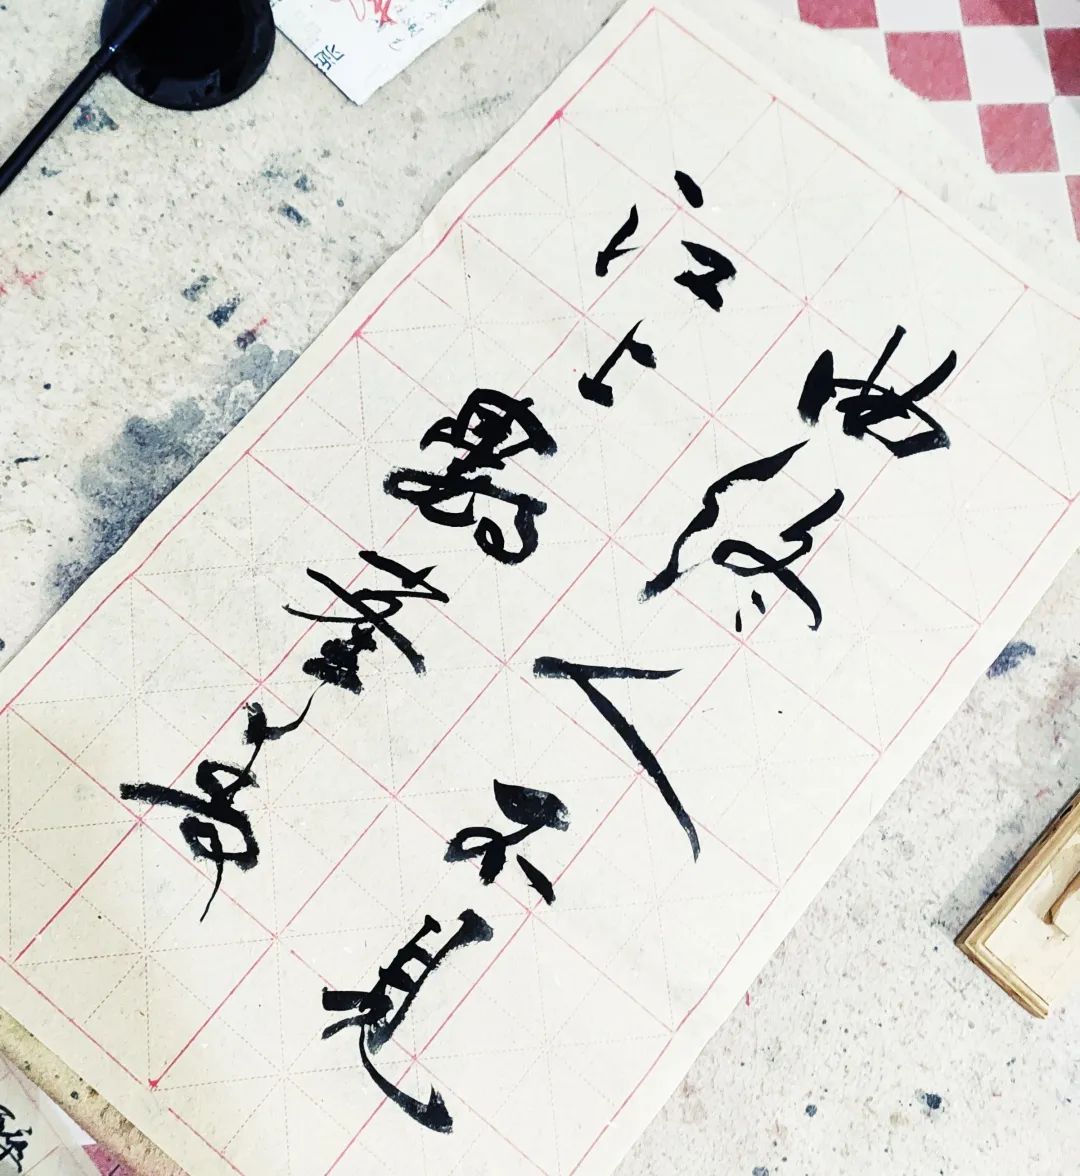 曲終人不見
江上數峯青